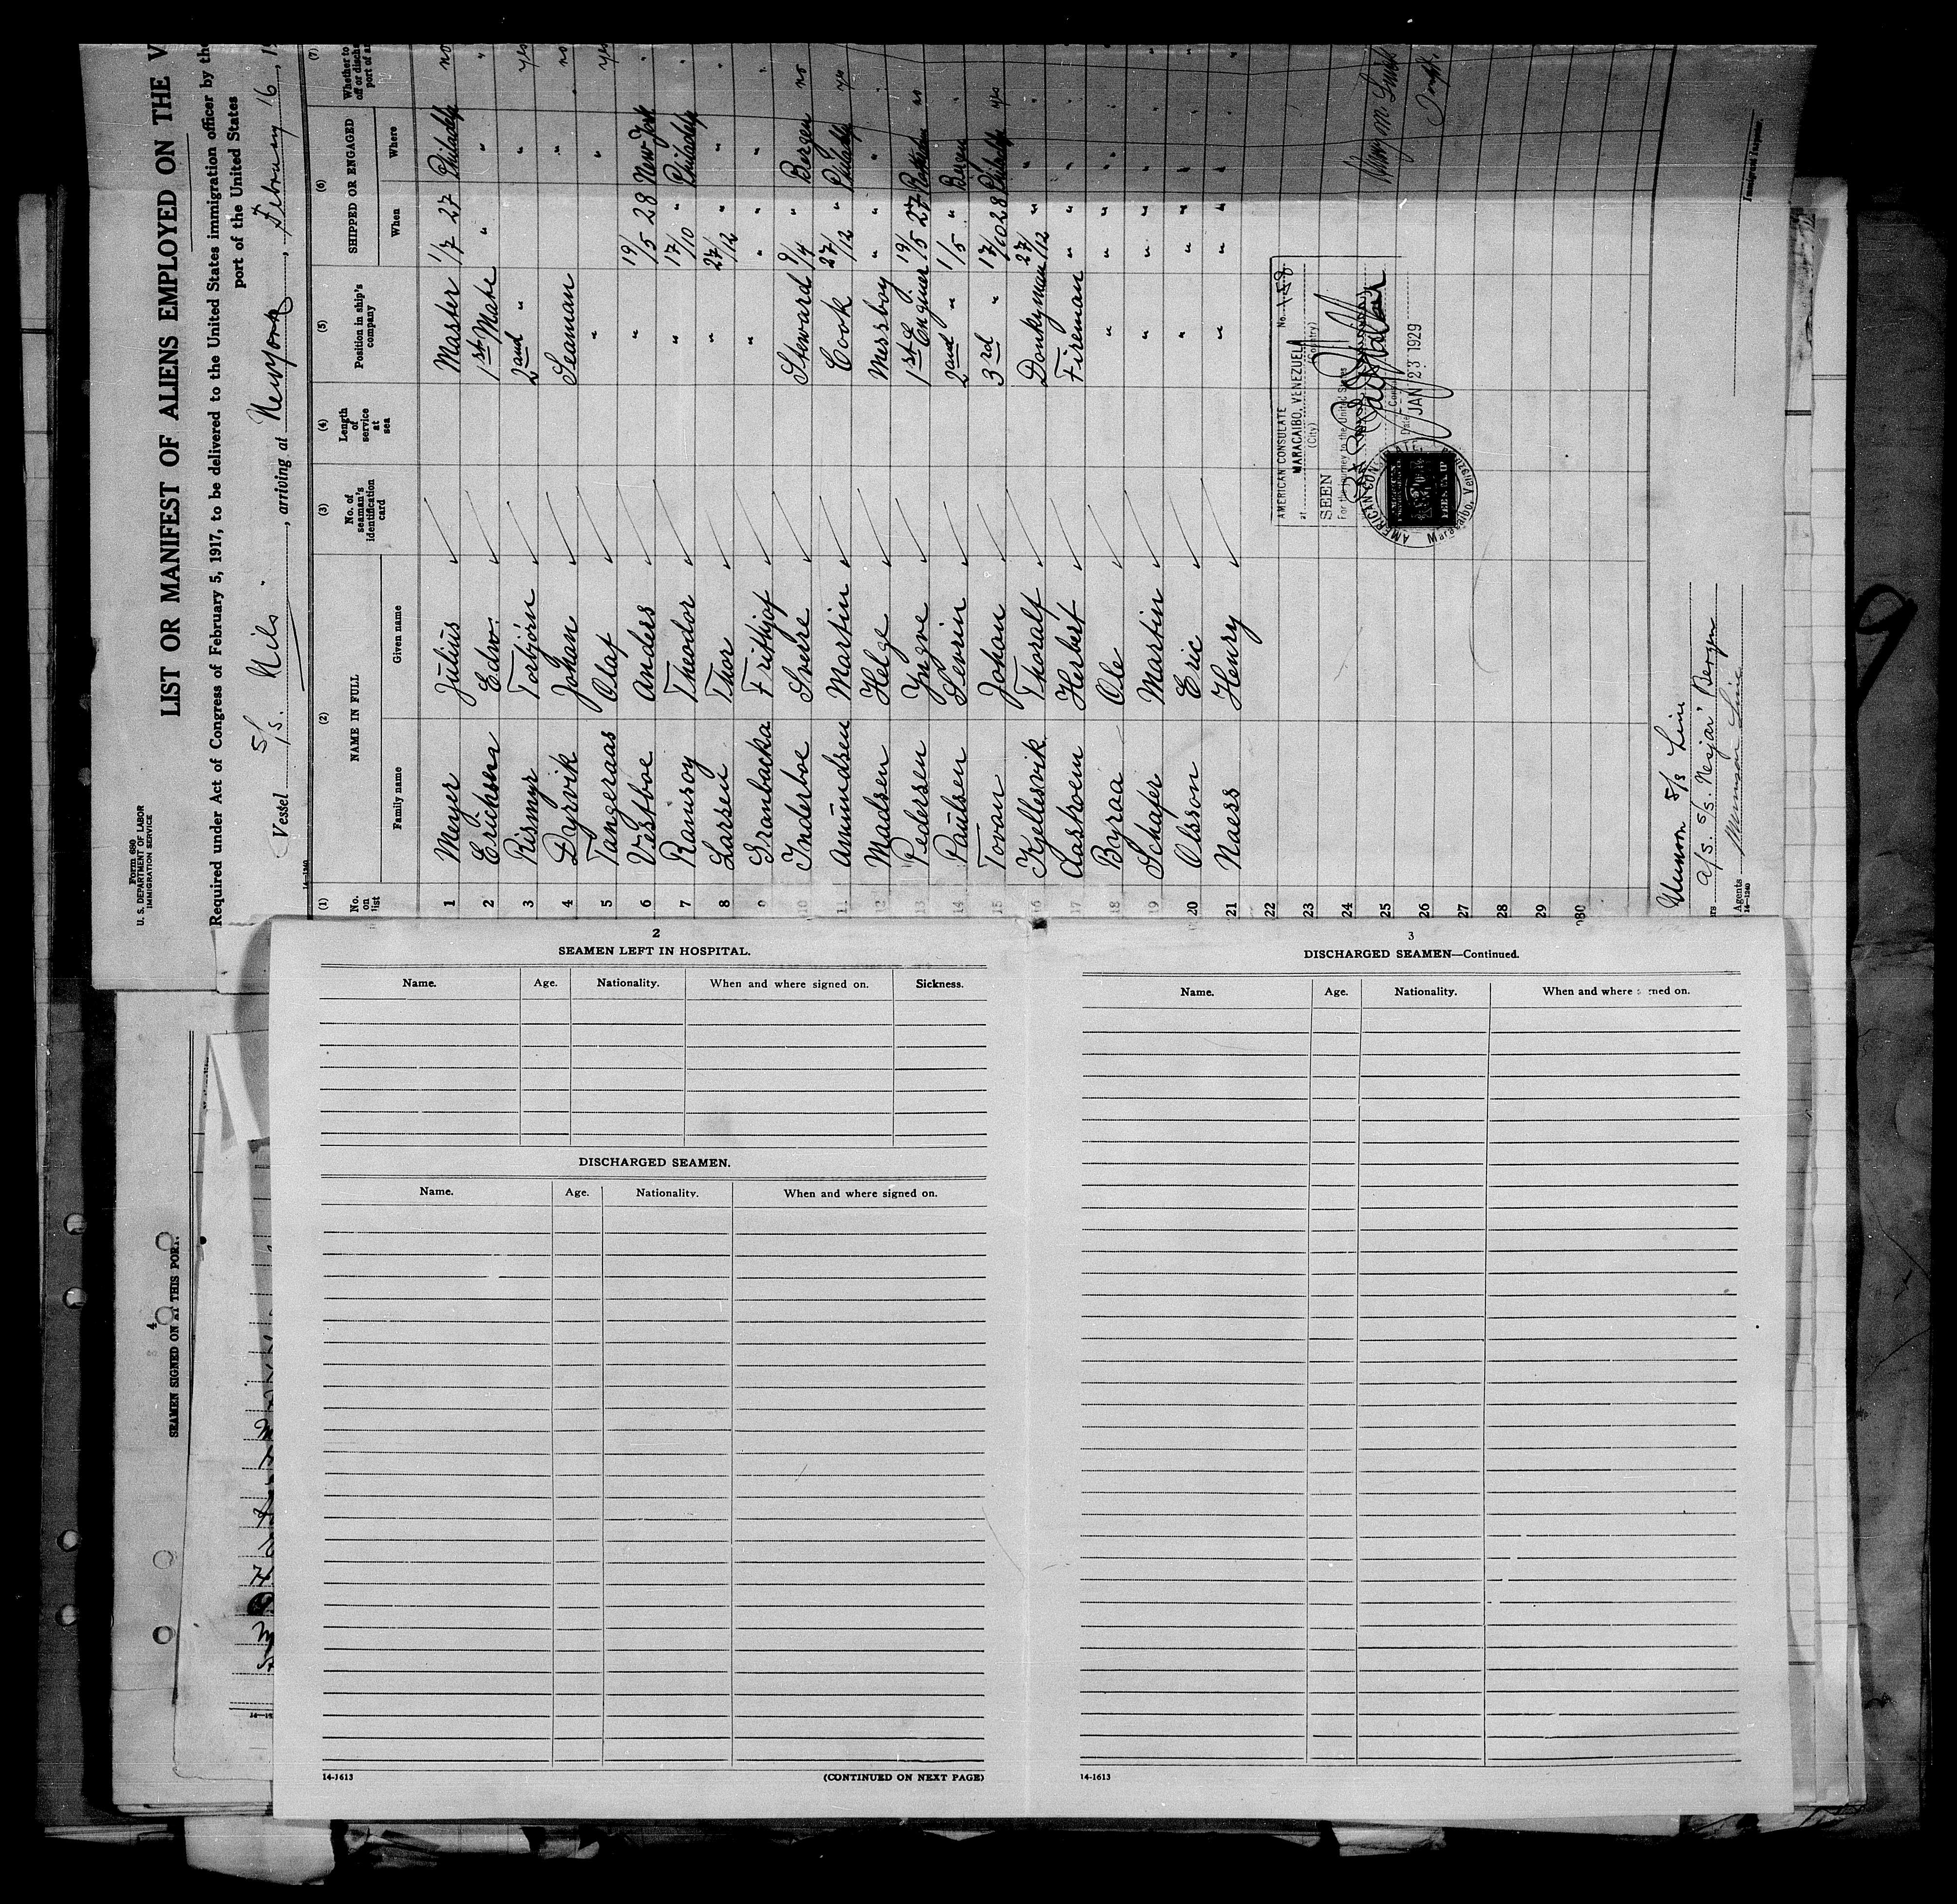 Form 680
U. S. DEPARTMENT OF LABOR
IMMIGRATION SERVICE
LIST OR MANIFEST OF ALIENS EMPLOYED ON THE V
Required under Act of Congress of February 5, 1917, to be delivered to the United States immigration officer by the
port of the United States
Vessel S/S. Nils, arriving at New York, February 16, 1
14-1240
(1) (2) (3) (4) (5) (6) (7)
No. on list NAME IN FULL No. of seaman's identification card Length of service at sea Position in ship's company SHIPPED OR ENGAGED Whether to
Family name Given name When Where
1 Meyer Julius Master 1/7 27 Philadelp no
2 Erichsen Edw. 1st Mate " " "
3 Rismyr Torbjörn 2nd " " yes
4 Dyrvik Johan Seaman " no
5 Tangeraas Olaf " " yes
6 Vestboe Anders " 19/5 28 New York "
7 Ramsoy Theodor " 17/10 " Philadelp "
8 Larsen Thor " 27/12 " " "
9 Granbacka Frithjof " " " " "
10 Inderboe Sverre Steward 9/4 " Bergen no
11 Amundsen Martin Cook 27/12 " Philadelp yes
12 Madsen Helge Messboy " " " "
13 Pedersen Yngve 1st Enginer 19/5 27 no
14 Paulsen Sevrin 2and " 1/5 " Bergen "
15 Tovan Johan 3rd " 17/10 28 Philadelp yes
16 Kjellesvik Thoralf Donkyman 27/12 " " "
17 Herbert Fireman " " " "
18 Byraa Ole " " " " "
19 Schafer Martin " " " " "
20 Olsson Eric " " " " "
21 Naess Henry " " " " "
22
23
24
25
26
27
28
29
AMERICAN CONSULATE No. 158
at MARACAIBO, VENEZUELA
(City) (Country)
SEEN
For the journey to the United States
Date JAN 23 1929
AMERICAN CONSULATE
Maracaibo, Venezuela
Munson S/S Line
A/S. S/S. Nesjar' Bergen
Agents Munson Line
14-1240
Immigrant Inspector.
2
SEAMEN LEFT IN HOSPITAL.
Name. Age. Nationality. When and where signed on. Sickness.
DISCHARGED SEAMEN.
Name. Age. Nationality. When and where signed on.
14-1613 (CONTINUED ON NEXT PAGE)
3
DISCHARGED SEAMEN—Continued.
Name. Age. Nationality. When and where signed on.
14-1613
4
SEAMEN SIGNED ON AT THIS PORT.
9